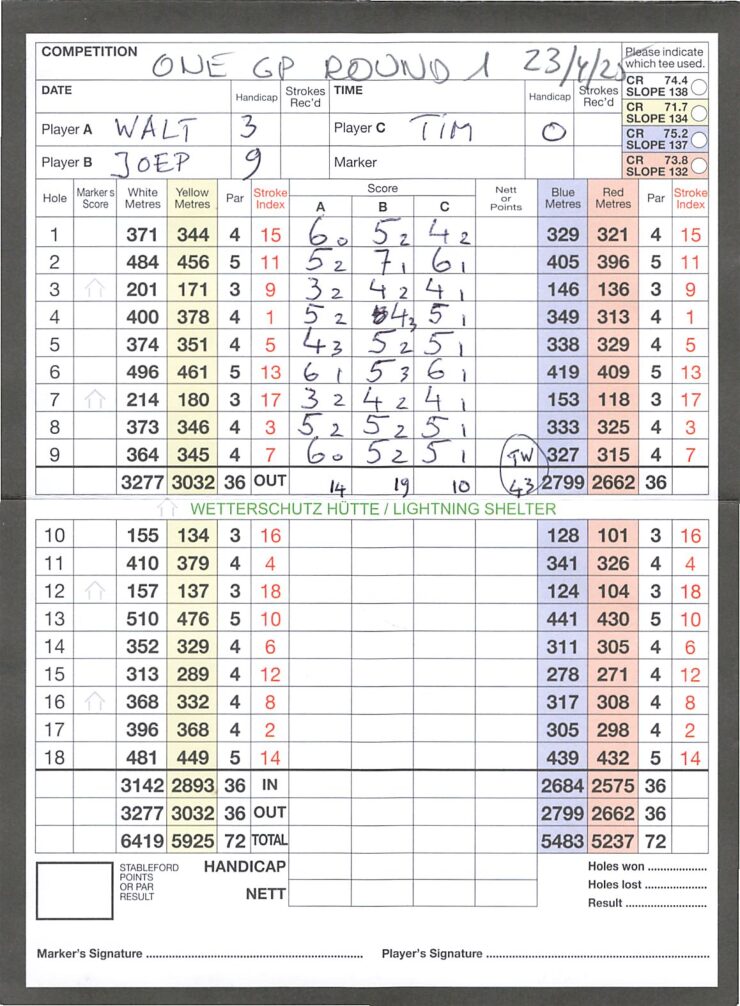 COMPETITION ONE GP ROUND 1 23/4/25 Please indicate which tee used.
DATE Handicap Strokes Rec'd TIME Handicap Strokes Rec'd CR 74.4 SLOPE 138
CR 71.7 SLOPE 134
Player A WALT 3 Player C TIM 0 CR 75.2 SLOPE 137
Player B JOEP 9 Marker CR 73.8 SLOPE 132
Hole Marker's Score White Metres Yellow Metres Par Stroke Index Score A B C Nett or Points Blue Metres Red Metres Par Stroke Index
1 371 344 4 15 6 0 5 2 4 2 329 321 4 15
2 484 456 5 11 5 2 7 1 6 1 405 396 5 11
3 201 171 3 9 3 2 4 2 4 1 146 136 3 9
4 400 378 4 1 5 2 4 3 5 1 349 313 4 1
5 374 351 4 5 4 3 5 2 5 1 338 329 4 5
6 496 461 5 13 6 1 5 3 6 1 419 409 5 13
7 214 180 3 17 3 2 4 2 4 1 153 118 3 17
8 373 346 4 3 5 2 5 2 5 1 333 325 4 3
9 364 345 4 7 6 0 5 2 5 1 TW 327 315 4 7
3277 3032 36 OUT 14 19 10 43 2799 2662 36
WETTERSCHUTZ HÜTTE / LIGHTNING SHELTER
10 155 134 3 16 128 101 3 16
11 410 379 4 4 341 326 4 4
12 157 137 3 18 124 104 3 18
13 510 476 5 10 441 430 5 10
14 352 329 4 6 311 305 4 6
15 313 289 4 12 278 271 4 12
16 368 332 4 8 317 308 4 8
17 396 368 4 2 305 298 4 2
18 481 449 5 14 439 432 5 14
3142 2893 36 IN 2684 2575 36
3277 3032 36 OUT 2799 2662 36
6419 5925 72 TOTAL 5483 5237 72
STABLEFORD POINTS OR PAR RESULT HANDICAP Holes won ...................
NETT Holes lost ...................
Result .........................
Marker's Signature .......................................................... Player's Signature ..........................................................